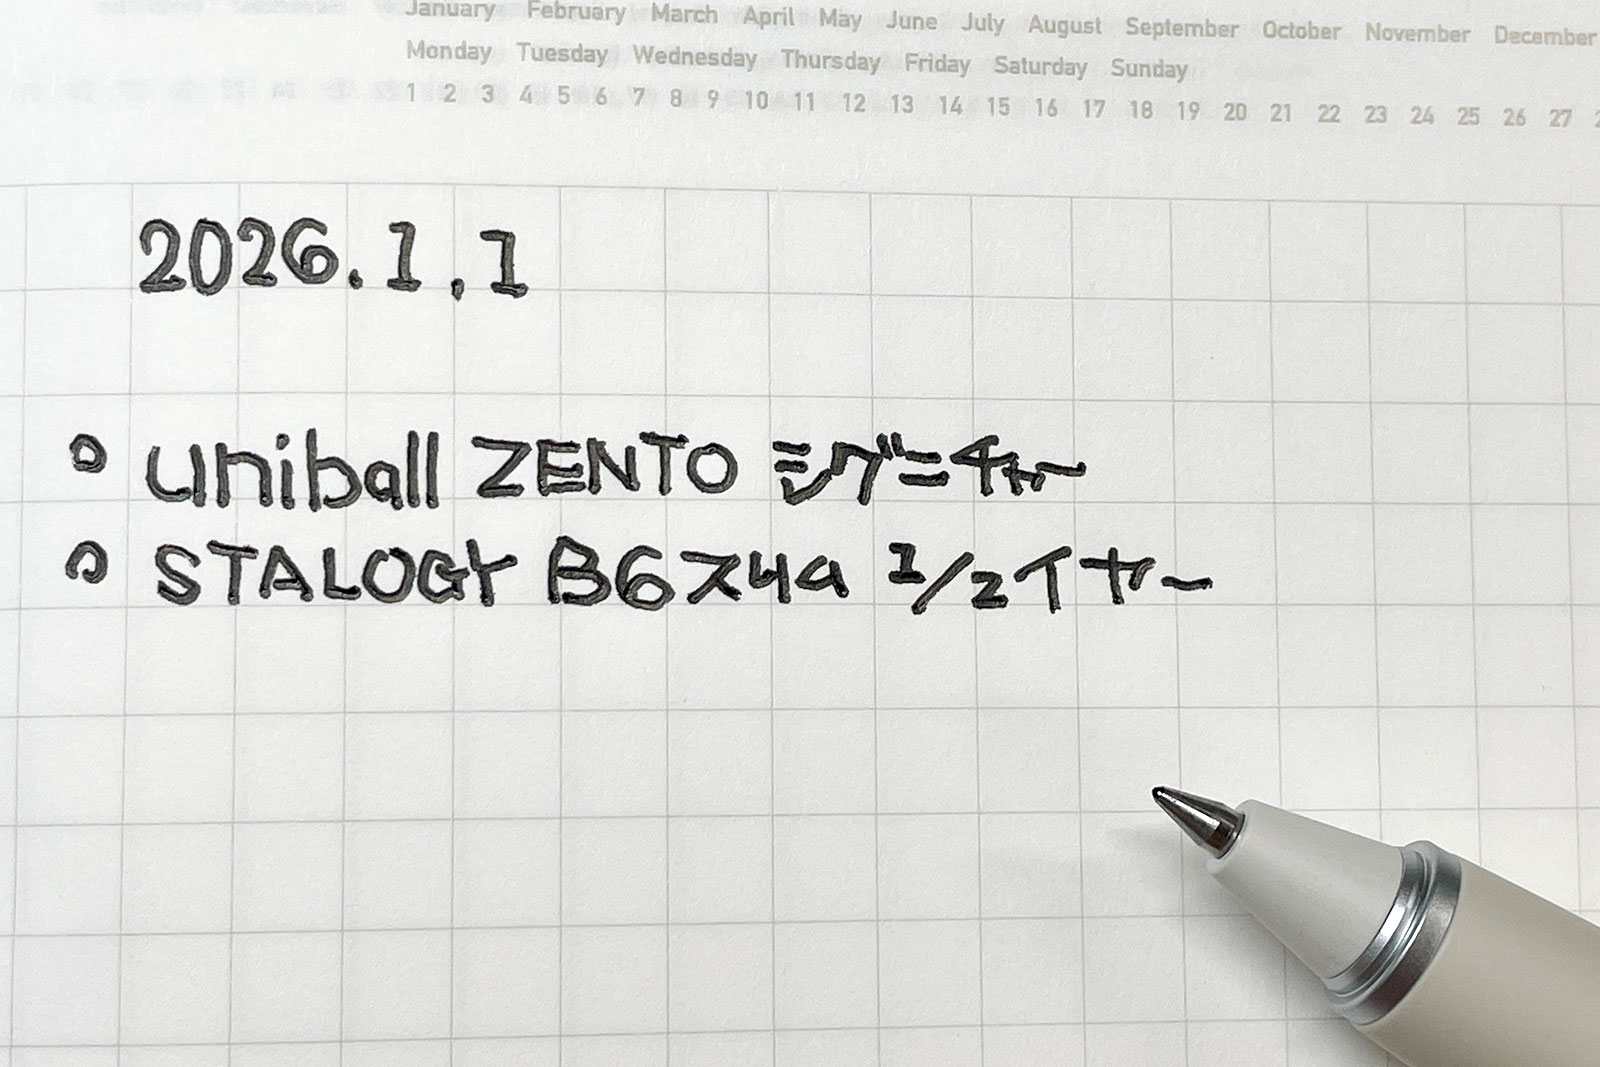 January February March April May June July August September October November December
Monday Tuesday Wednesday Thursday Friday Saturday Sunday
1 2 3 4 5 6 7 8 9 10 11 12 13 14 15 16 17 18 19 20 21 22 23 24 25 26 27
2026.1.1
○ uniball ZENTO シグニチャー
○ STALOGY B6スリム 1/2イヤー